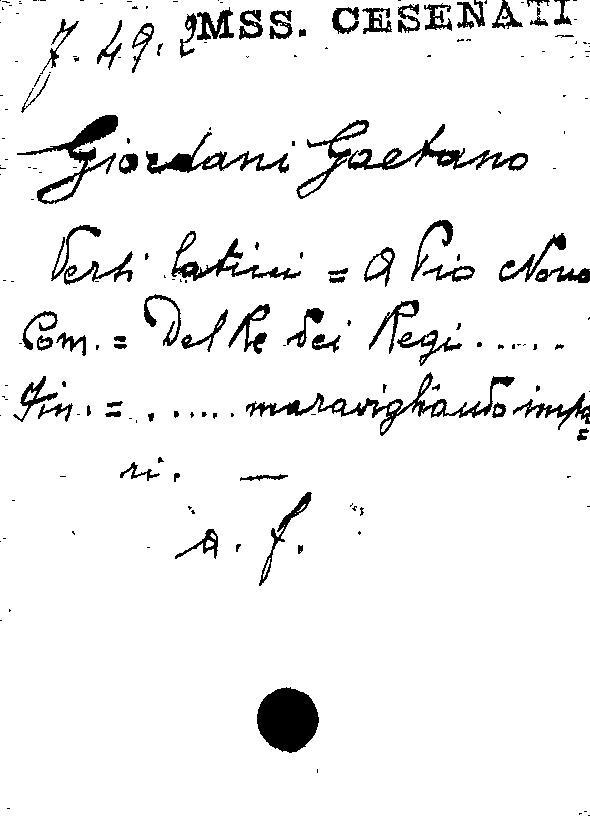 7. 49. 2 MSS. CESENATI
Giordani Gaetano
Versi latini = A Pio Nono
Com. = Del Re dei Regi.....
Fin. = ...... maravigliando impa=
ri. —
a. f.